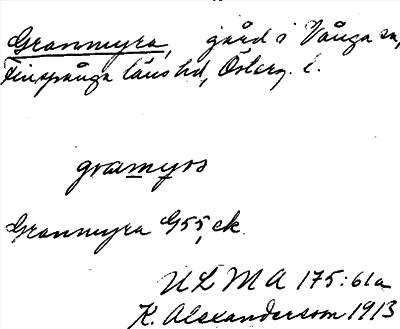 Granmyra, gård i Vånga sn,
Finspånga läns hd, Österg. l.
gramyrs
Granmyra G55, ek.
ULMA 175:61a
K. Alexanderson 1913